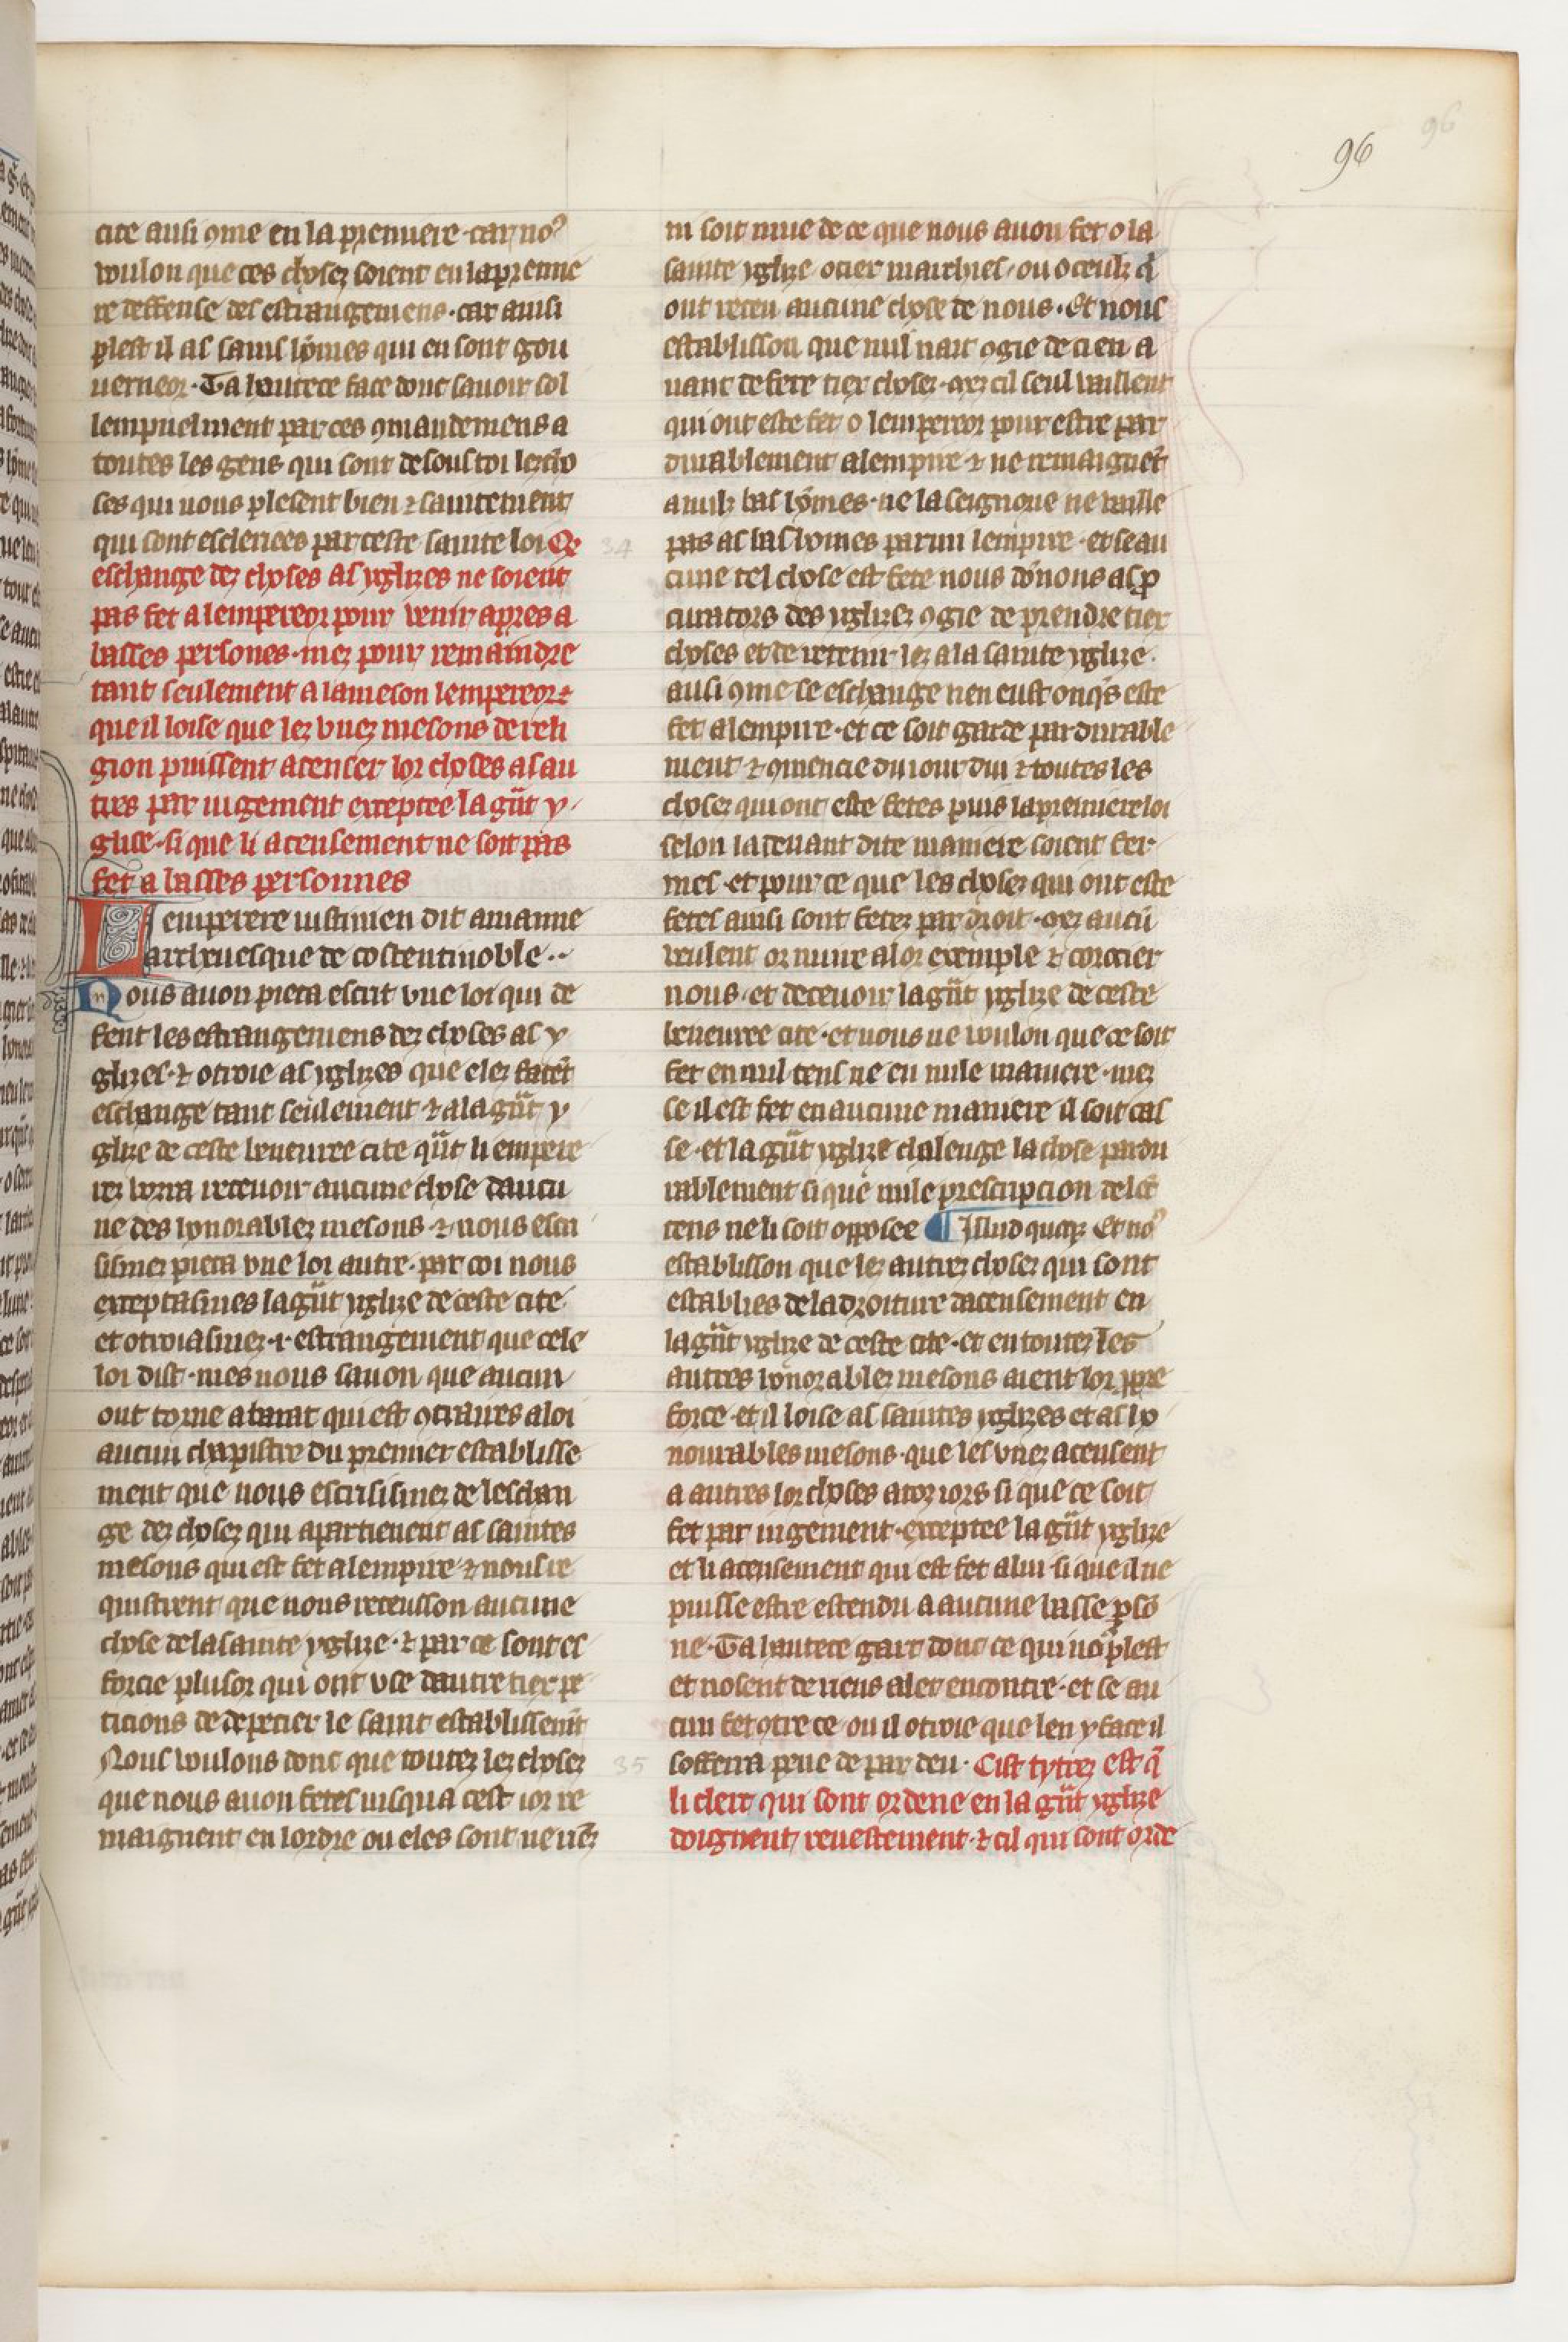 96
96
cite ausi 9me en la premiere · car no9
voulon que ces choses soient en la premie
re deffense des estrangemens · car ausi
plest il as sains homes qui en sont gou
uerneor · Ta hautece face donc sauoir sol
lempnelment par ces 9mandemens a
toutes les gens qui sont desouz toi lez cho
ses qui nous plesent bien ⁊ saintement
qui sont esclerices par ceste sainte loi Qe
eschange dez choses as yglizes ne soient
pas fet a lempereor pour venir apres a
basses persones · mez pour remaindre
tant seulement a la meson lempereor ⁊
que il loise que lez vnez mesons de reli
gion puissent acenser lor choses as au
tres par iugement exceptee la gñt y
glise · si que li acensement ne soit pas
fet a basses personnes
L emperere iustinien dit a manne
archeuesque de costentinoble ··
Nous auon pieca escrit vne loi qui de
fent les estrangemens dez choses as y
glizes · ⁊ otroie as yglizes que elez facēt
eschange tant seulement ⁊ a la gñt y
glize de ceste beneuree cite qñt li empere
rez vorra receuoir aucune chose daucu
ne des honorablez mesons · ⁊ nous escri
sismez pieca vne loi autre · par coi nous
exceptasmes la gñt yglize de ceste cite
et otroiasmez · i · estrangement que cele
loi dist · mes nous sauon que aucun
ont torne a barat qui est 9traires a loi
aucun chapistre du premier establisse
ment que nous escrisismez de leschan
ge dez chosez qui apartienent as saintes
mesons qui est fet a lempire · ⁊ nous re
quistrent que nous receusson aucune
chose de la sainte yglize · ⁊ par ce sont es
forcie plusor qui ont vse dautre tiex pe
ticions de depecier le saint establissemt̄
Nous voulons donc que toutez lez chosez
que nous auon fetes iusqua cest ior re
maignent en lordre ou eles sont ne riēz
34
35
ni soit mue de ce que nous auon fet o la
sainte yglize o tiex marchies · ou o ceulz q̄
ont receu aucune chose de nous · Et nous
establisson que nul nait 9gie de ci en a
uant de fere tiex chosez · mez cil seul vaillent
qui ont este fet o lempereor pour estre par
durablement a lempire ⁊ ne remaignēt
a nulz bas homes · ne la seignorie ne vaille
pas as bas homes par mi lempire · et se au
cune tel chose est fete nous dōnons as p
curators des yglizez 9gie de prendre tiex
choses et de retenir lez a la sainte yglize ·
ausi 9me se eschange nen eust onq̄s este
fet a lempire · et ce soit garde pardurable
ment ⁊ 9mencie du iour dui ⁊ toutes les
chosez qui ont este fetes puis la premiere loi
selon la deuant dite maniere soient fer
mes · et pour ce que les chosez qui ont este
fetes ausi sont fetez par droit · mez aucū
veulent or nuire a lor exemple ⁊ corocier
nous · et deceuoir la gñt yglize de ceste
beneuree cite · et nous ne voulon que ce soit
fet en nul tens ne en nule maniere · mez
se il est fet en aucune maniere il soit cas
se · et la gñt yglize chalenge la chose pardu
rablement si que nule prescripcion de lōc
tens ne li soit opposee ¶ Illud quoqz Et no9
establisson que lez autrez chosez qui sont
establies de la droiture dacensement en
la gñt yglize de ceste cite · et en toutez les
autres honorablez mesons aient lor ppre
force · et il loise as saintes yglizes et as ho
nourables mesons · que les vnez acensent
a autres lor choses a toz iors si que ce soit
fet par iugement · exceptee la gñt yglize
et li acensement qui est fet a lui · si que il ne
puisse estre estendu a aucune basse psō
ne · Ta hautece gart donc ce qui no9 plest
et nosent de riens aler encontre · et se au
cun fet 9tre ce ou il otroie que len y face il
soffrera peine de par deu · Cist tytrez est q̄
li clerc qui sont ordene en la gñt yglize
doignent reuestement · ⁊ cil qui sont orde